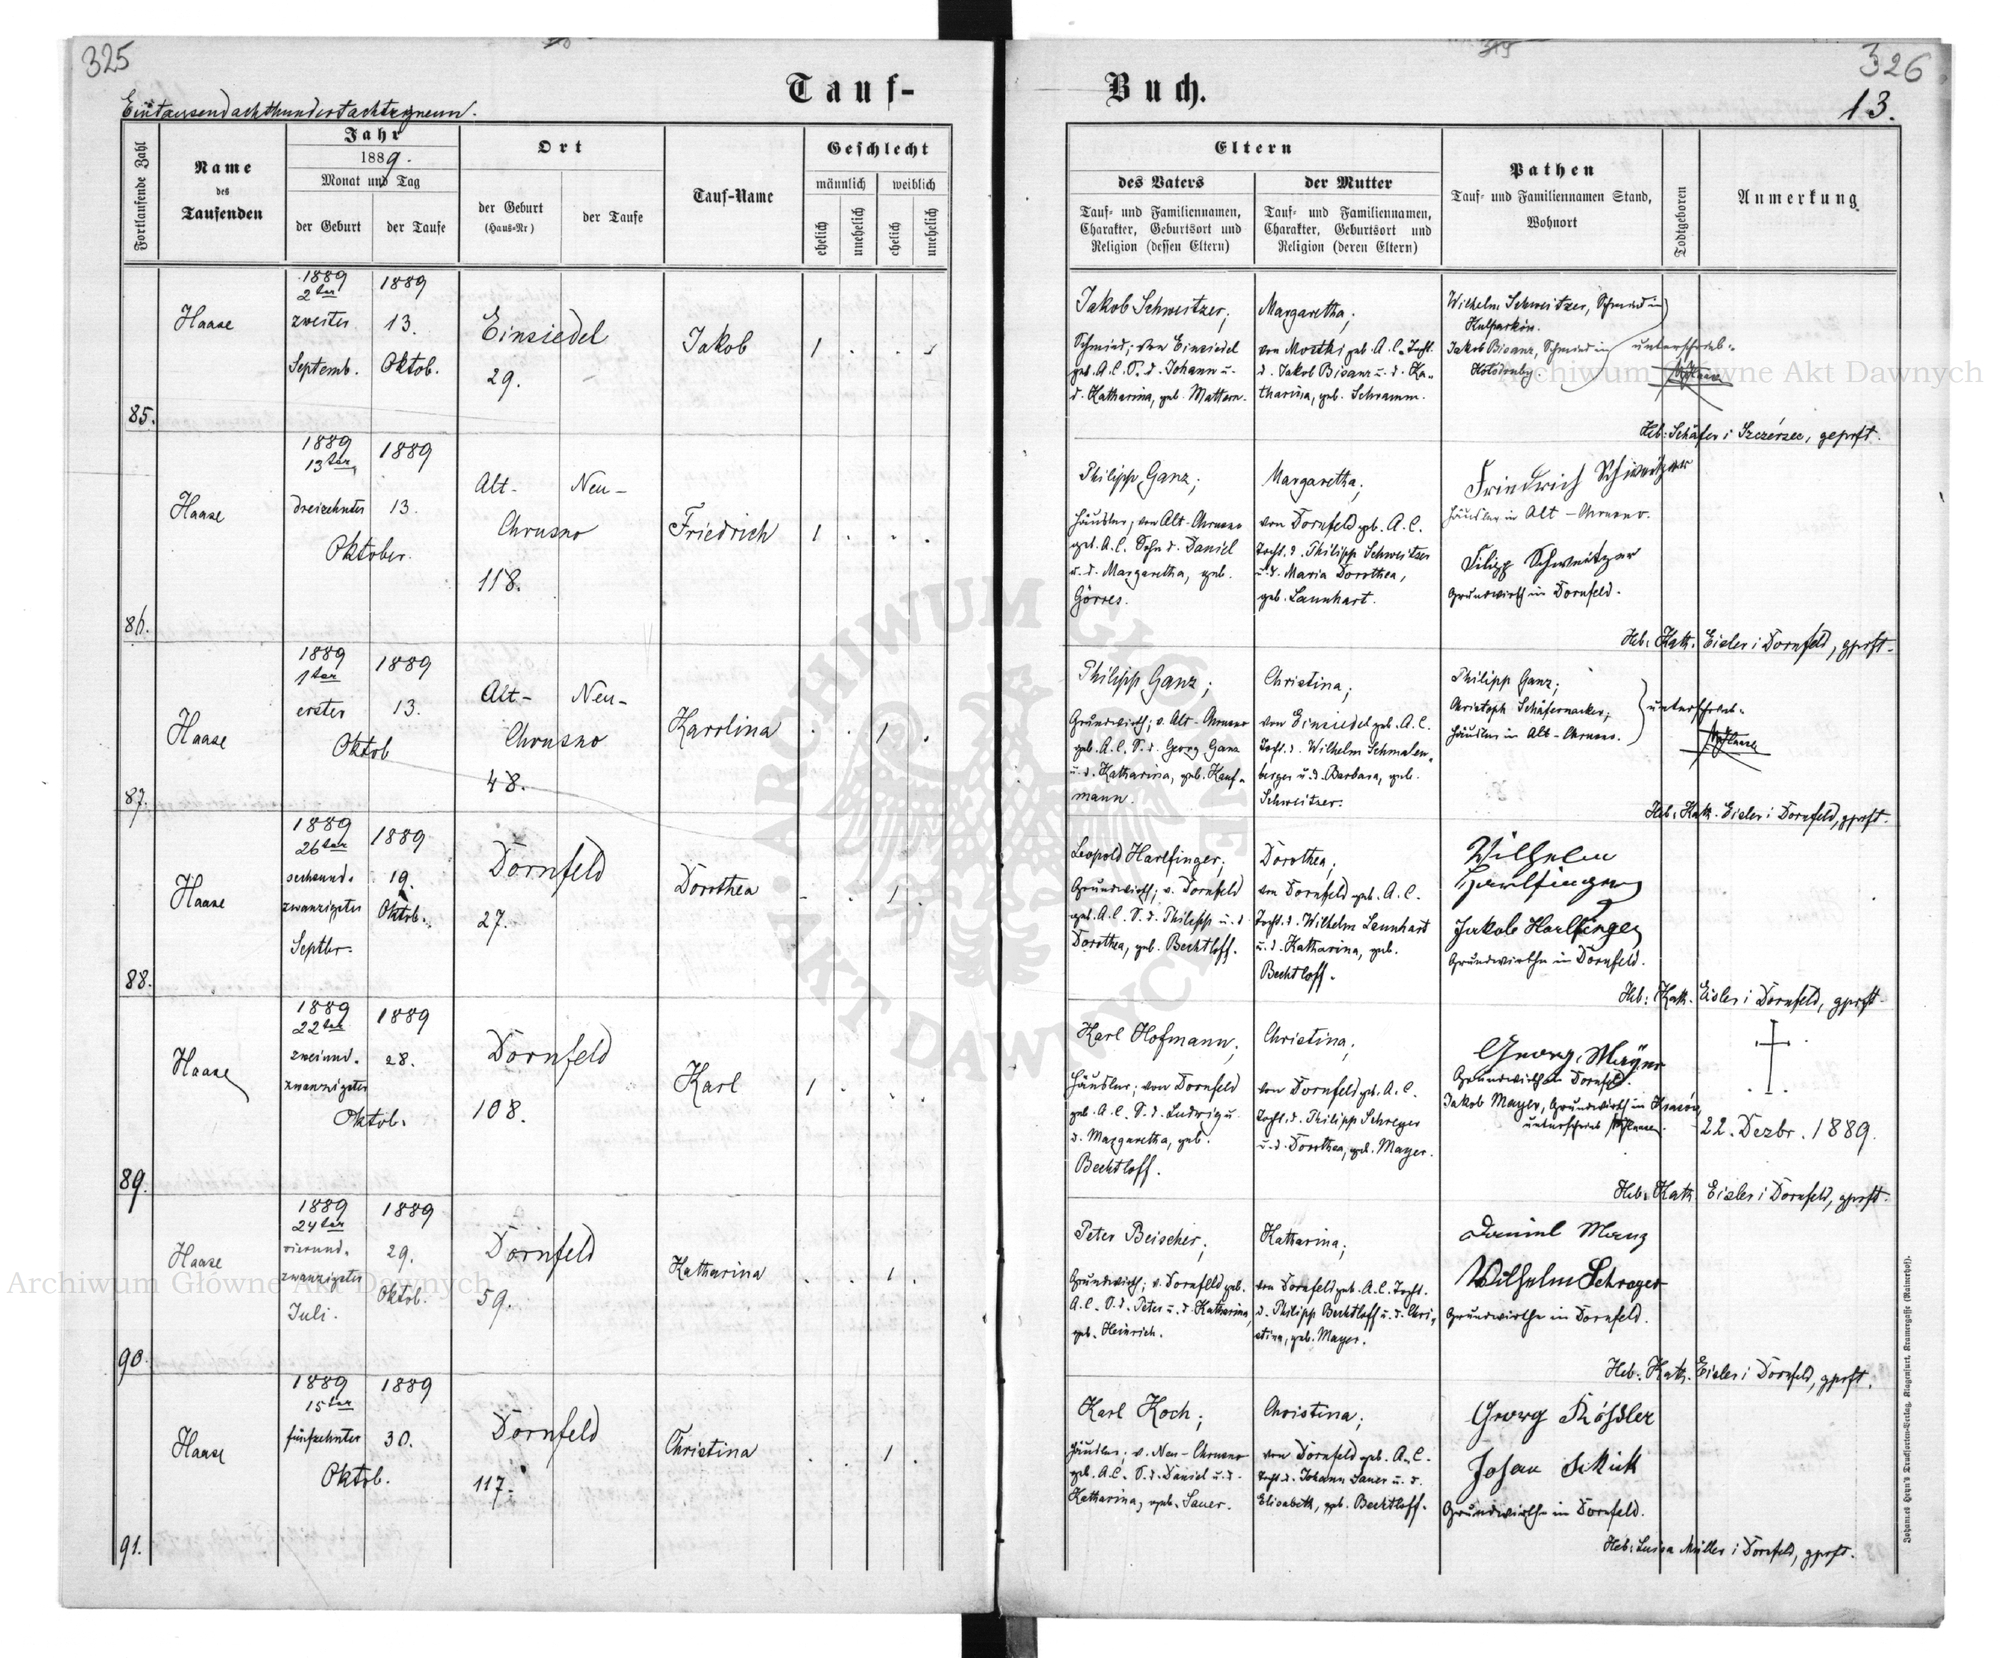 325
Tauf-
Eintausendachthundertachtzigneun.
Fortlaufende Zahl
Name
des
Taufenden
Jahr
1889.
Monat und Tag
der Geburt
der Taufe
Ort
der Geburt
(Haus-Nr)
der Taufe
Tauf-Name
Geschlecht
männlich
weiblich
ehelich
unehelich
ehelich
unehelich
Buch.
326
13.
Eltern
des Vaters
der Mutter
Tauf- und Familiennamen,
Charakter, Geburtsort und
Religion (dessen Eltern)
Tauf- und Familiennamen,
Charakter, Geburtsort und
Religion (deren Eltern)
Pathen
Tauf- und Familiennamen Stand,
Wohnort
Todtgeboren
Anmerkung
85.
Haase
1889
2ter
zweiter
Septemb.
1889
13.
Oktob.
Einsiedel
29.
Jakob
1
Jakob Schweitzer;
Schmied; von Einsiedel
geb. A.C. S. d. Johann u.
d. Katharina, geb. Mattern.
Margaretha;
von Mostki geb. A.C. Tocht.
d. Jakob Bisanz u. d. Ka-
tharina, geb. Schramm.
Wilhelm Schweitzer, Schmied in
Kulparków.
Jakob Bisanz, Schmied in
unterschrieb.
Heb: Schäfer i Szczérzec, geprft.
86.
Haase
1889
13ter
dreizehnter
Oktober.
1889
13.
Alt-
Neu-
Chrusno
118.
Friedrich
1
Philipp Ganz;
Häusler, von Alt-Chrusno
geb. A.C. Sohn d. Daniel
u. d. Margaretha, geb.
Görres.
Margaretha;
von Dornfeld geb. A.C.
Tocht. d. Philipp Schweitzer
u. d. Maria Dorothea,
geb. Lannhart.
Friedrich Schweitzer
Häusler in Alt-Chrusno.
Filipp Schweitzer
Grundwirth in Dornfeld.
Heb: Kath. Eisler i Dornfeld, gprft.
87.
Haase
1889
1ter
erster
Oktob
1889
13.
Alt-
Neu-
Chrusno
48.
Karolina
1
Philipp Ganz;
Grundwirth; v. Alt-Chrusno
geb. A.C. S. d. Georg Ganz
u. d. Katharina, geb. Kauf-
mann.
Christina;
von Einsiedel geb. A.C.
Tocht. d. Wilhelm Schmalen-
berger u. d. Barbara, geb.
Schweitzer.
Philipp Ganz;
Christoph Schäfernacker;
Häusler in Alt-Chrusno.
unterschrieb.
Heb: Kath. Eisler i Dornfeld, gprft.
88.
Haase
1889
26ter
sechsund-
zwanzigster
Septbr.
1889
19.
Oktob.
Dornfeld
27.
Dorothea
1
Leopold Harlfinger;
Grundwirth; v. Dornfeld
geb. A.C. S. d. Philipp u. d
Dorothea, geb. Bechtloff.
Dorothea;
von Dornfeld geb. A.C.
Tocht. d. Wilhelm Lannhart
u. d. Katharina, geb.
Bechtloff.
Wilhelm
Harlfinger
Jakob Harlfinger
Grundwirthe in Dornfeld.
Heb: Kath. Eisler i Dornfeld, gprft.
89.
Haase
1889
22ter
zweiund-
zwanzigster
Oktob.
1889
28.
Dornfeld
108.
Karl
1
Karl Hofmann;
Häusler; von Dornfeld
geb. A.C. S. d. Ludwig u.
d. Margaretha, geb.
Bechtloff.
Christina;
von Dornfeld geb. A.C.
Tocht. d. Philipp Schreyer
u. d. Dorothea, geb. Mayer.
Georg Mayer
Grundwirth in Dornfeld.
Jakob Mayer, Grundwirth in
unterschrieb
22. Dezbr. 1889.
Heb: Kath. Eisler i Dornfeld, gprft.
90.
Haase
1889
24ter
vierund-
zwanzigster
Juli.
1889
29.
Oktob.
Dornfeld
59.
Katharina
1
Peter Beischer;
Grundwirth; v. Dornfeld geb.
A.C. S. d. Peter u. d. Katharina,
geb. Heinrich.
Katharina;
von Dornfeld geb. A.C. Tocht.
d. Philipp Bechtloff u. d. Chri-
stina, geb. Mayer.
Daniel Manz
Wilhelm Schreyer
Grundwirthe in Dornfeld.
Heb: Kath. Eisler i Dornfeld, gprft.
91.
Haase
1889
15ter
fünfzehnter
Oktob.
1889
30.
Dornfeld
117.
Christina
1
Karl Koch;
Häusler; v. Neu-Chrusno
geb. A.C. S. d. Daniel u. d.
Katharina, geb. Sauer.
Christina;
von Dornfeld geb. A.C.
Tocht. d. Johann Sauer u. d.
Elisabeth, geb. Bechtloff.
Georg
Grundwirthe in Dornfeld.
Heb: Luisa Müller i Dornfeld, gprft.
Johannes Heyn's Drucksorten-Verlag, Klagenfurt, Kramergasse (Rainerhof).
Archiwum Główne Akt Dawnych
Archiwum Główne Akt Dawnych
ARCHIWUM GŁÓWNE AKT DAWNYCH